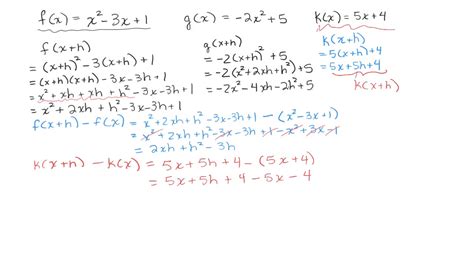 f(x) = x² - 3x + 1
g(x) = -2x² + 5
k(x) = 5x + 4
f(x+h)
= (x+h)² - 3(x+h) + 1
= (x+h)(x+h) - 3x - 3h + 1
= x² + xh + xh + h² - 3x - 3h + 1
= x² + 2xh + h² - 3x - 3h + 1
g(x+h)
= -2(x+h)² + 5
= -2(x² + 2xh + h²) + 5
= -2x² - 4xh - 2h² + 5
k(x+h)
= 5(x+h) + 4
= 5x + 5h + 4
k(x+h)
f(x+h) - f(x) = x² + 2xh + h² - 3x - 3h + 1 - (x² - 3x + 1)
= x² + 2xh + h² - 3x - 3h + 1 - x² + 3x - 1
= 2xh + h² - 3h
k(x+h) - k(x) = 5x + 5h + 4 - (5x + 4)
= 5x + 5h + 4 - 5x - 4